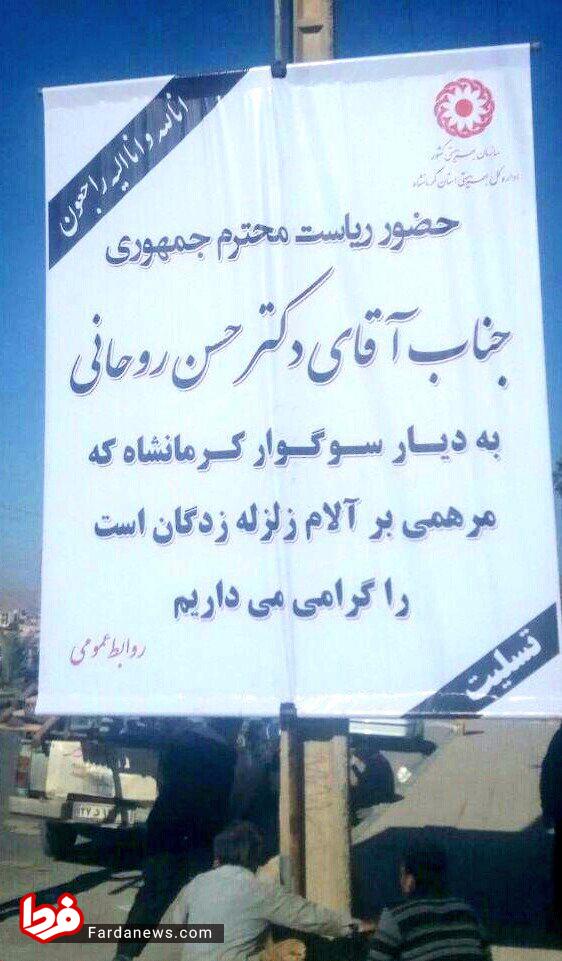 انا لله و انا الیه راجعون
سازمان بهزیستی کشور
اداره کل بهزیستی استان کرمانشاه
حضور ریاست محترم جمهوری
جناب آقای دکتر حسن روحانی
به دیار سوگوار کرمانشاه که
مرهمی بر آلام زلزله زدگان است
را گرامی می داریم
روابط عمومی
تسلیت
فردا
Fardanews.com